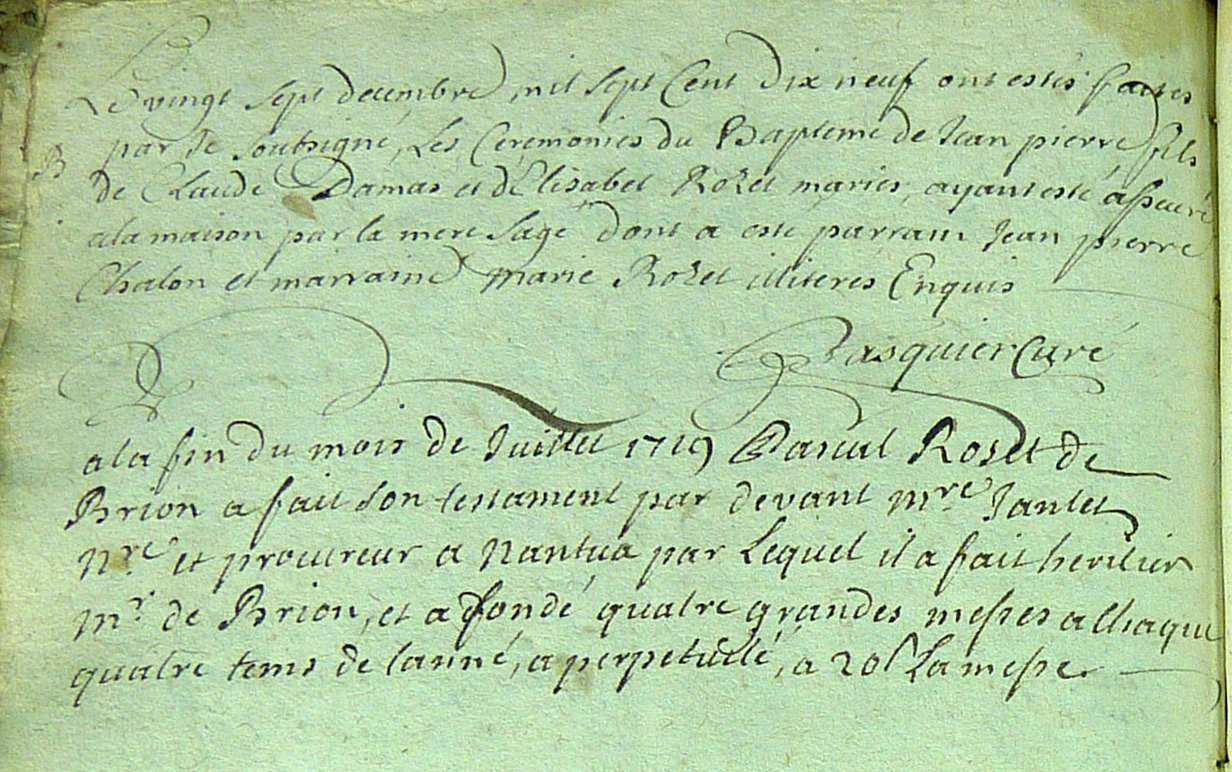 Le vingt sept decembre mil sept Cent dix neuf ont estés faites
par Je soutsigné, Les Ceremonies du Bapteme de Jean pierre fils
B de Claude Damas et d'Elisabet Rozet mariés, ayant esté assuré
a la maison par la mere sage dont a esté parrain Jean pierre
Chalon et marraine marie Rozet illiterés Enquis
Pasquier Curé
a la fin du mois de Juillet 1719 Pascal Roset de
Brion a fait son testament par devant mre Jantet
nre et procureur a nantua par Lequel il a fait heritier
mr de Brion, et a fondé quatre grandes messes a Chaque
quatre tems de lanné, a perpetuité, a 20s La messe.